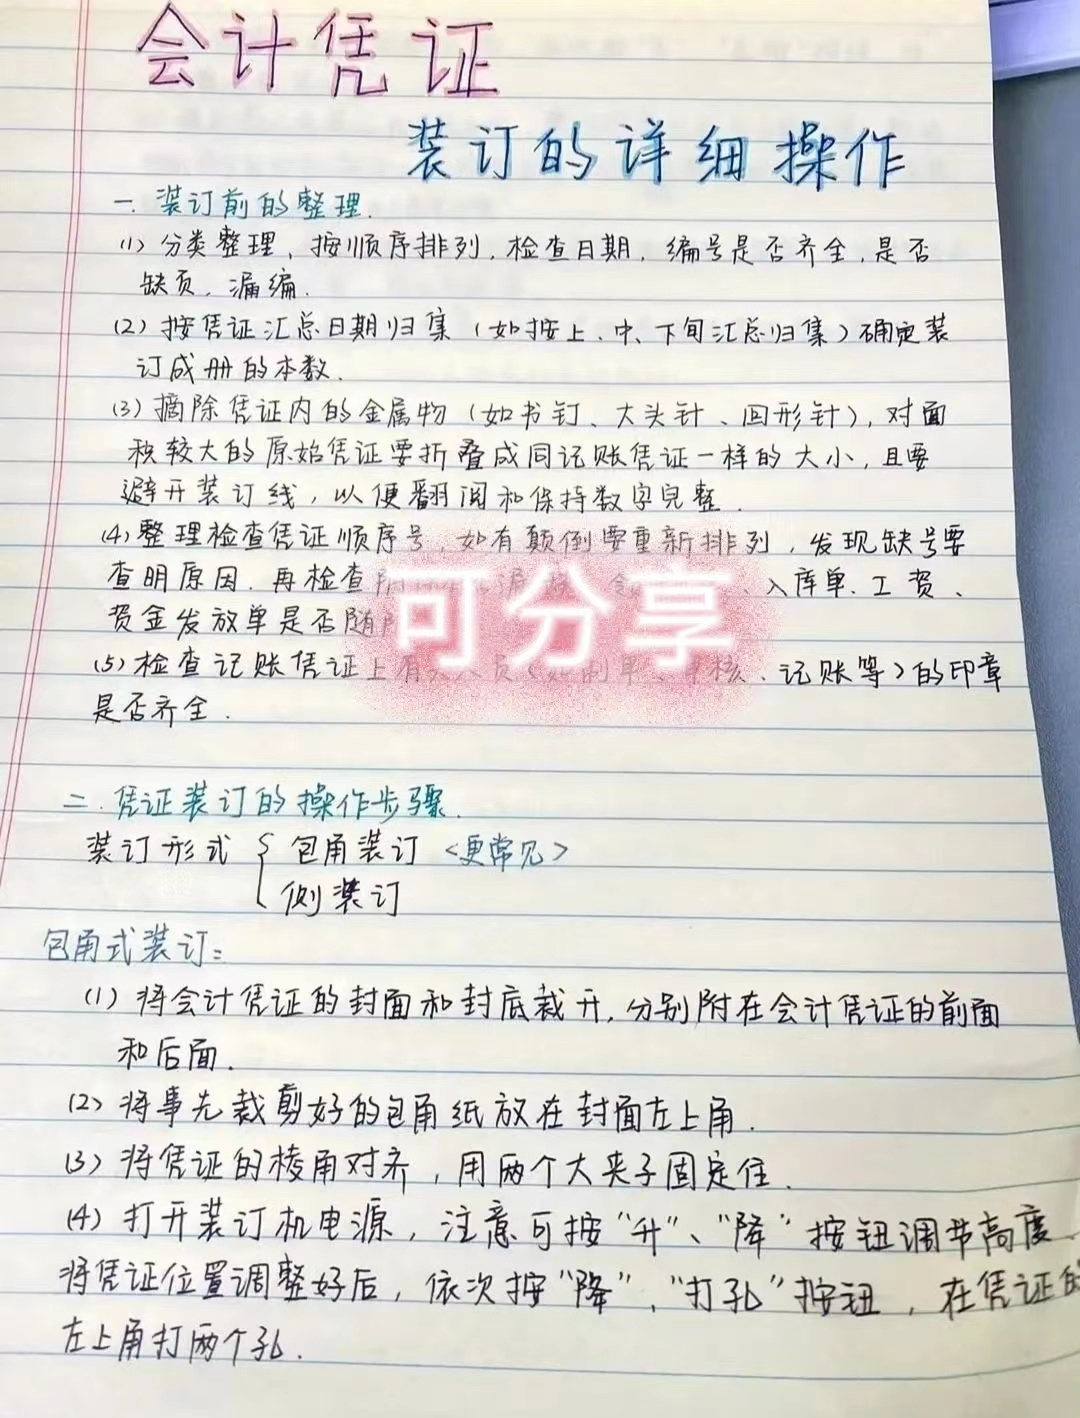 会计凭证
装订的详细操作
一.装订前的整理.
(1) 分类整理、按顺序排列.检查日期.编号是否齐全,是否
缺页.漏编.
(2) 按凭证汇总日期归集(如按上、中、下旬汇总归集)确定装
订成册的本数.
(3) 摘除凭证内的金属物(如书钉、大头针、回形针),对面
积较大的原始凭证要折叠成同记账凭证一样的大小,且要
避开装订线,以便翻阅和保持数字完整.
(4) 整理检查凭证顺序号,如有颠倒要重新排列,发现缺号要
查明原因.再检查 、入库单.工资、
资金发放单是否随
可分享
(5) 检查记账凭证上有关人员(如制单、审核、记账等)的印章
是否齐全.
二.凭证装订的操作步骤.
装订形式 { 包角装订 <更常见>
侧装订
包角式装订:
(1) 将会计凭证的封面和封底裁开,分别附在会计凭证的前面
和后面.
(2) 将事先裁剪好的包角纸放在封面左上角.
(3) 将凭证的棱角对齐,用两个大夹子固定住.
(4) 打开装订机电源,注意可按“升”、“降”按钮调节高度.
将凭证位置调整好后,依次按“降”、“打孔”按钮,在凭证的
左上角打两个孔.